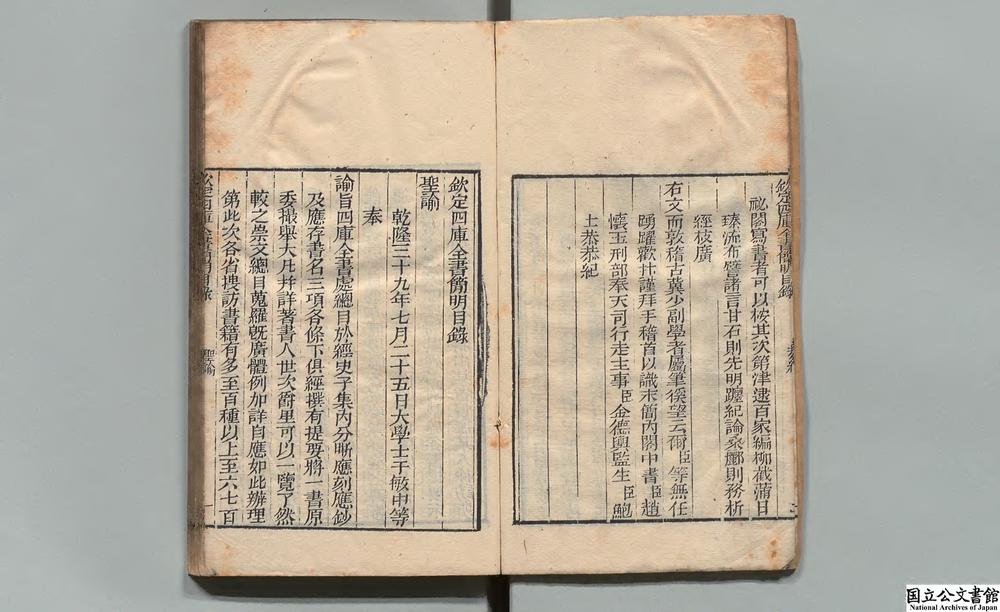 欽定四庫全書簡明目錄
恭紀
祕閣寫書者可以按其次第津逮百家編柳截蒲日
臻流布譬諸言甘石則先明躔紀論桑酈則務析
經枝廣
右文而敦稽古冀少副學者屬筆徯望云爾臣等無任
踴躍歡抃謹拜手稽首以識末簡內閣中書臣趙
懷玉刑部奉天司行走主事臣金德輿監生臣鮑
士恭恭紀
欽定四庫全書簡明目錄
聖諭
乾隆三十九年七月二十五日大學士于敏中等
奉
諭旨四庫全書處總目於經史子集內分晰應刻應鈔
及應存書名三項各條下俱經撰有提要將一書原
委撮舉大凡并詳著書人世次爵里可以一覽了然
較之崇文總目蒐羅旣廣體例加詳自應如此辦理
第此次各省搜訪書籍有多至百種以上至六七百
欽定四庫全書簡明目錄
聖諭
一
国立公文書館
National Archives of Japan